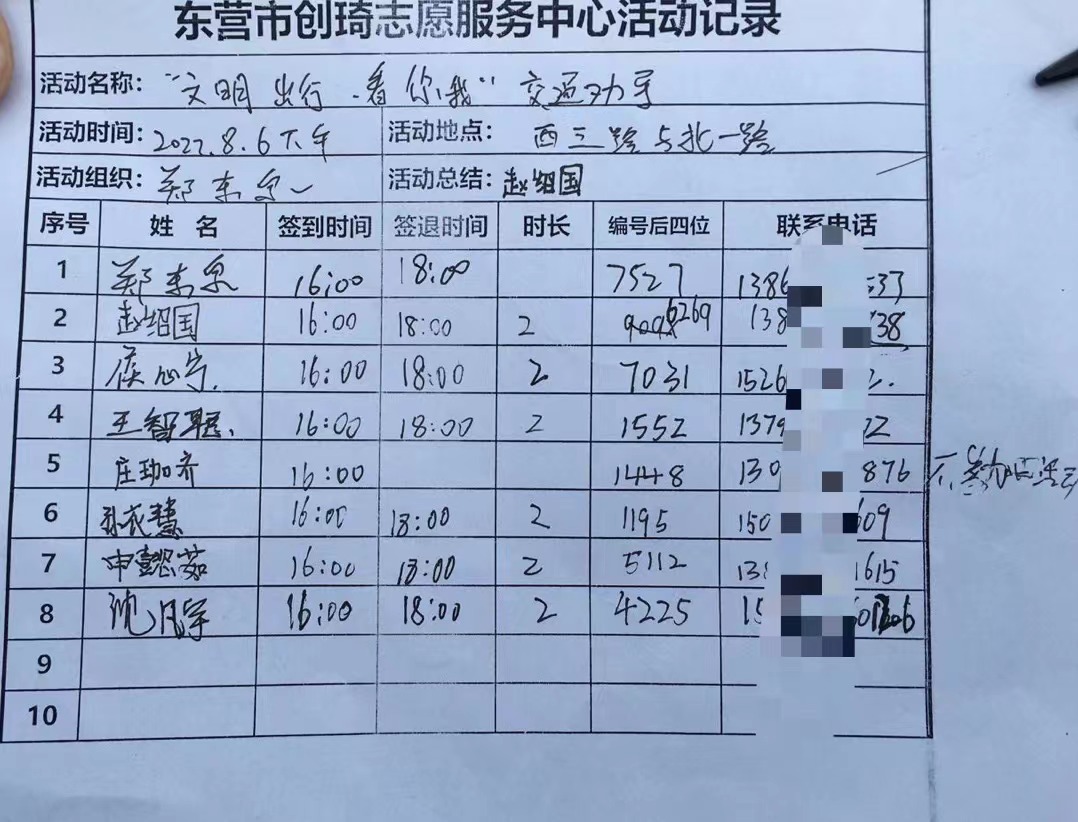 东营市创琦志愿服务中心活动记录
活动名称: “文明出行·看你我”交通劝导
活动时间: 2022.8.6下午 活动地点: 西三路与北一路
活动组织: 郑东 活动总结: 赵绍国
序号 姓 名 签到时间 签退时间 时长 编号后四位 联系电话
1 郑东 16:00 18:00 7527 1386 537
2 赵绍国 16:00 18:00 2 6269 138 738
3 16:00 18:00 2 7031 1526 2.
4 王智 16:00 18:00 2 1552 1379 22
5 庄珈齐 16:00 1448 130 876 活动
6 孙衣慧 16:00 18:00 2 1195 150 609
7 申懿茹 16:00 18:00 2 5112 13 1615
8 沈凡宇 16:00 18:00 2 4225 15
9
10